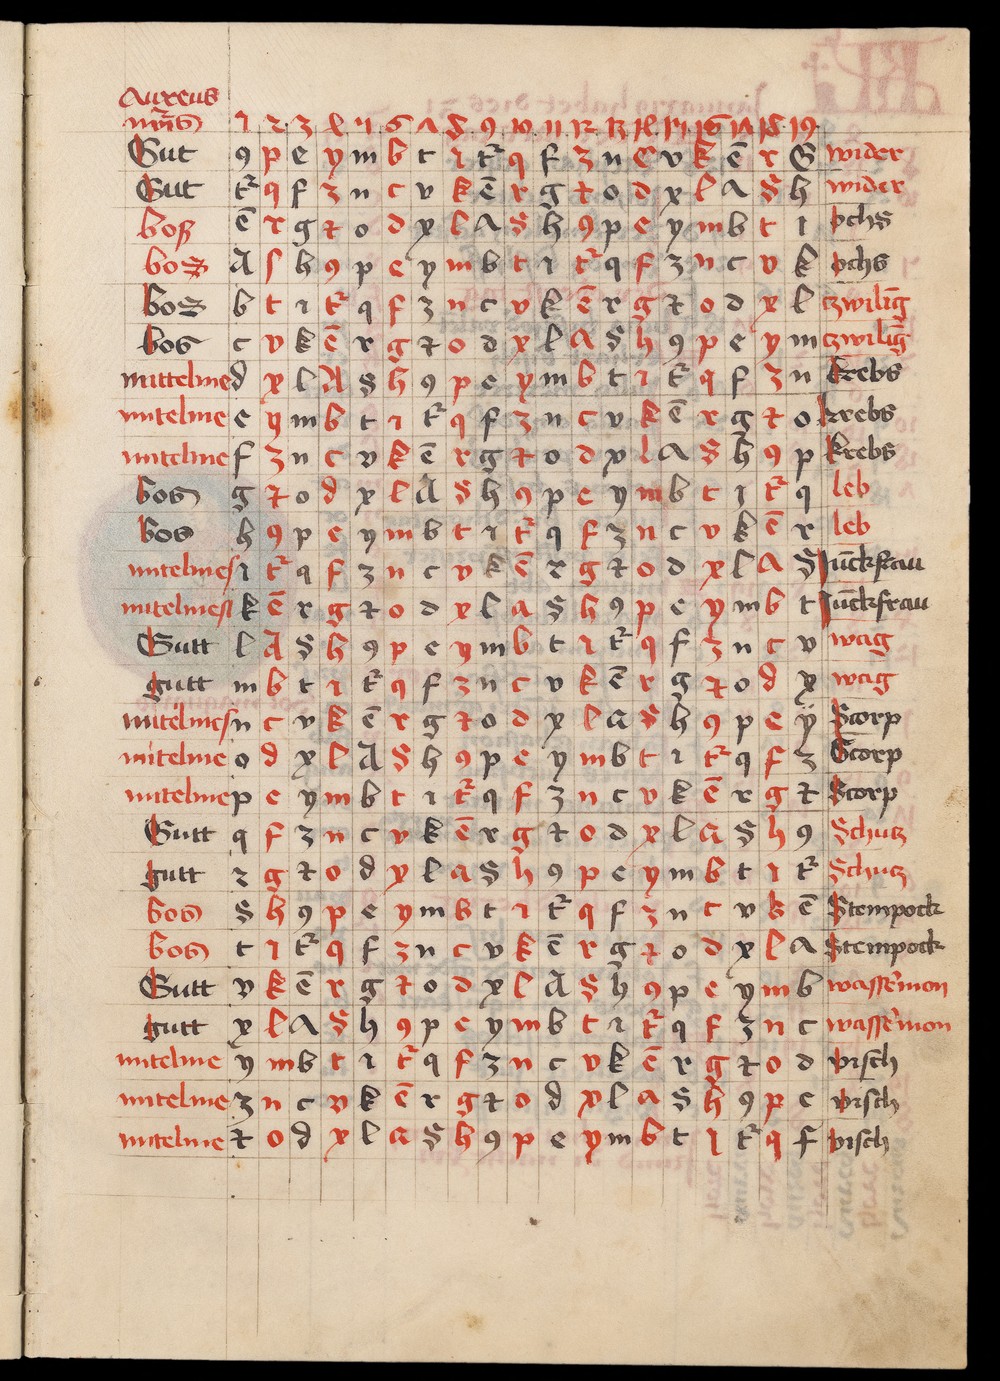 Aureus
nūs 1 2 3 4 5 6 7 8 9 10 11 12 13 14 15 16 17 18 19
Gut 9 p e y m b t i tᷣ q f z n c v k ē r G wider
Gut tᷣ q f z n c v k ē r g ⁊ o d x l A s h wider
boß ē r g ⁊ o d x l A s h 9 p e y m b t i ochs
bos A s h 9 p e y m b t i tᷣ q f z n c v k ochs
bos b t i tᷣ q f z n c v k ē r g ⁊ o d x l zwilīg
bos c v k ē r g ⁊ o d x l A s h 9 p e y m zwilīg
mittelme d x l A s h 9 p e y m b t i tᷣ q f z n krebs
mitelme e y m b t i tᷣ q f z n c v k ē r g ⁊ o krebs
mitelme f z n c v k ē r g ⁊ o d x l A s h 9 p krebs
bos g ⁊ o d x l A s h 9 p e y m b t i tᷣ q leb
bos h 9 p e y m b t i tᷣ q f z n c v k ē r leb
mitelmes i tᷣ q f z n c v k ē r g ⁊ o d x l A s Jūckfrau
mitelmesi k ē r g ⁊ o d x l a s h 9 p e y m b t Jūckfrau
Gutt l A s h 9 p e y m b t i tᷣ q f z n c v wag
gutt m b t i tᷣ q f z n c v k ē r g ⁊ o d x wag
mitelmes n c v k ē r g ⁊ o d x l a s h 9 p e ÿ Scorp
mitelme o d x l A s h 9 p e y m b t i tᷣ q f z Scorp
mitelme p e y m b t i tᷣ q f z n c v k ē r g ⁊ Scorp
Gutt q f z n c v k ē r g ⁊ o d x l a s h 9 Schutz
gutt r g ⁊ o d x l a s h 9 p e y m b t i tᷣ Schutz
bos s h 9 p e y m b t i tᷣ q f z n c v k ē Stempock
bos t i tᷣ q f z n c v k ē r g ⁊ o d x l A Stempock
Gutt v k ē r g ⁊ o d x l A s h 9 p e y m b wasse͛mon
gutt x l A s h 9 p e y m b t i tᷣ q f z n c wasse͛mon
mitelme y m b t i tᷣ q f z n c v k ē r g ⁊ o d visch
mitelme z n c v k ē r g ⁊ o d x l a s h 9 p e visch
mitelme ⁊ o d x l a s h 9 p e y m b t i tᷣ q f visch